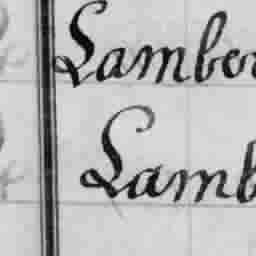 Lambe
Lamb